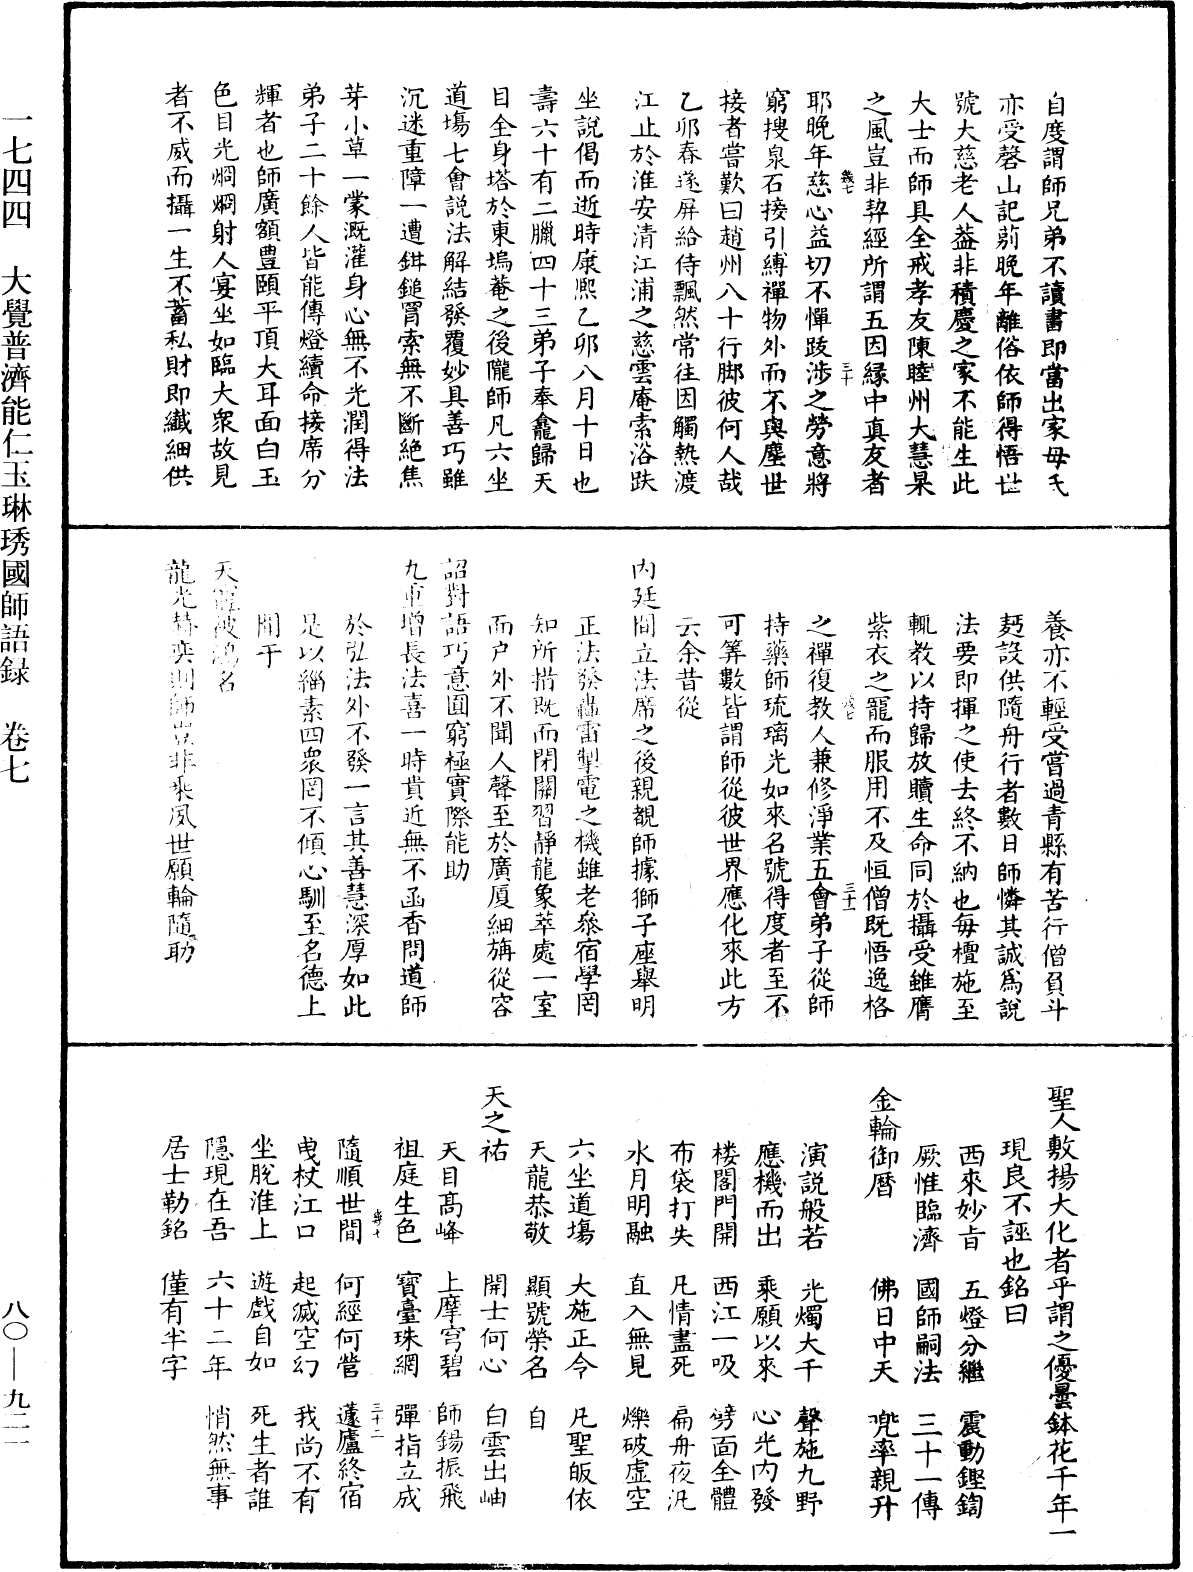 自度謂師兄弟不讀書即當出家毋氏
亦受磬山記莂晚年離俗依師得悟世
號大慈老人葢非積慶之家不能生此
大士而師具全戒孝友陳睦州大慧杲
之風豈非契經所謂五因緣中真友者
耶晚年慈心益切不憚跋涉之勞意將
窮搜泉石接引縛禪物外而不與塵世
接者嘗歎曰趙州八十行脚彼何人哉
乙卯春遂屏給侍飄然常往因觸熱渡
江止於淮安清江浦之慈雲庵索浴趺
坐說偈而逝時康熙乙卯八月十日也
壽六十有二臘四十三弟子奉龕歸天
目全身塔於東塢菴之後隴師凡六坐
道場七會説法解結發覆妙具善巧雖
沉迷重障一遭鉗鎚罥索無不斷絕焦
芽小草一蒙溉灌身心無不光潤得法
弟子二十餘人皆能傳燈續命接席分
輝者也師廣額豊頤平頂大耳面白玉
色目光烱烱射人宴坐如臨大衆故見
者不威而攝一生不蓄私財即纖細供
養亦不輕受嘗過青縣有苦行僧負斗
麫設供隨舟行者數日師憐其誠爲說
法要即揮之使去終不納也每檀施至
輒教以持歸放贖生命同於攝受雖膺
紫衣之寵而服用不及恒僧既悟逸格
之禪復教人兼修淨業五會弟子從師
持藥師琉璃光如來名號得度者至不
可筭數皆謂師從彼世界應化來此方
云余昔從
內廷間立法席之後親覩師據獅子座舉明
正法發轟雷掣電之機雖老叅宿學罔
知所措既而閉關習靜龍象萃處一室
而户外不聞人聲至於廣厦細旃從容
詔對語巧意圓窮極實際能助
九重增長法喜一時貴近無不函香問道師
於弘法外不發一言其善慧深厚如此
是以緇素四衆罔不傾心馴至名德上
聞于
天寵被鴻名
龍光赫奕則師豈非乘夙世願輪隨助
聖人敷揚大化者乎謂之優曇鉢花千年一
現良不誣也銘曰
西來妙㫖　五燈分繼　震動鏗鍧
厥惟臨濟　國師嗣法　三十一傳
金輪御曆　佛日中天　兜率親升
演説般若　光燭大千　聲施九野
應機而出　乘願以來　心光内發
楼閣門開　西江一吸　劈面全體
布袋打失　凡情盡死　扁舟夜汎
水月明融　直入無見　爍破虛空
六坐道場　大施正令　凡聖皈依
天龍恭敬　顯號榮名　自
天之祐　開士何心　白雲出岫
天目髙峰　上摩穹碧　師錫振飛
祖庭生色　寶臺珠網　彈指立成
隨順世間　何經何營　蘧廬終宿
曳杖江口　起滅空幻　我尚不有
坐脫淮上　遊戲自如　死生者誰
隱現在吾　六十二年　悄然無事
居士勒銘　僅有半字
幾七
三十
幾七
三十一
幾七
三十二
一七四四　大覺普濟能仁玉琳琇國師語録　卷七
八〇—九二一